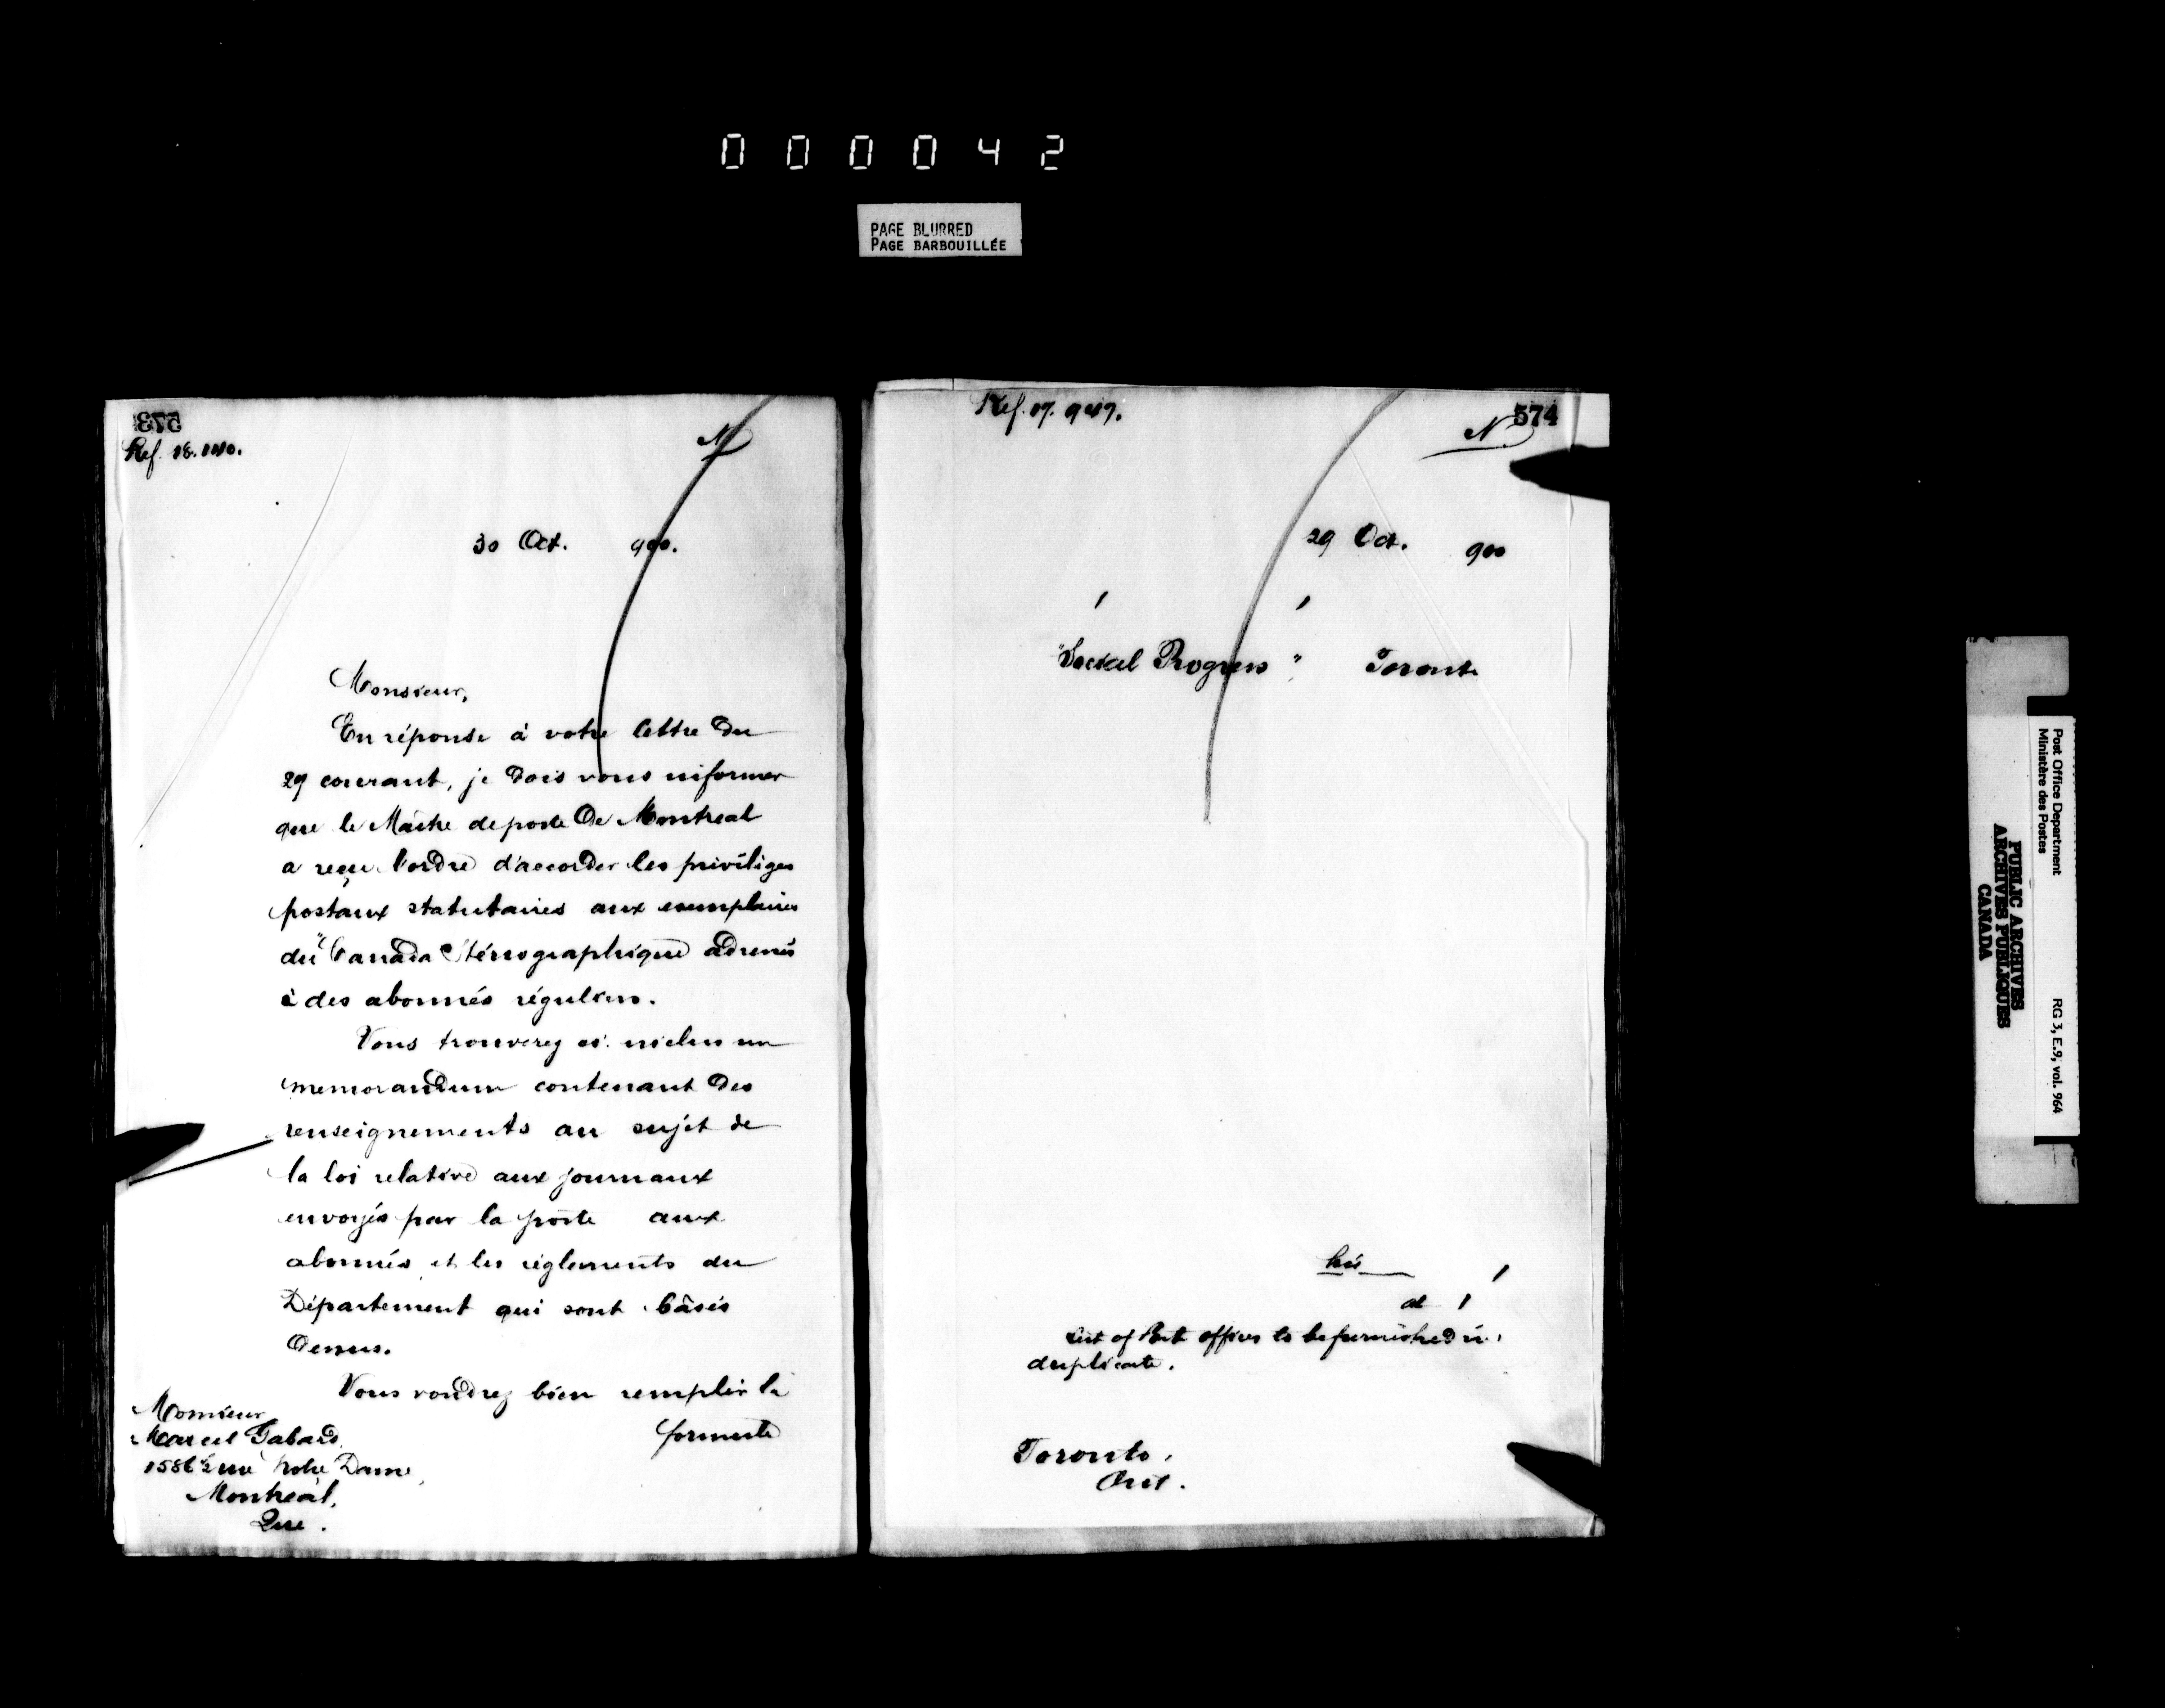 000042
PAGE BLURRED
PAGE BARBOUILLÉE
573
Ref. 18.140.
N
30 Oct. 900.
Monsieur,
En réponse à votre lettre du
29 courant, je dois vous informer
que le Maître de poste de Montreal
a reçu l'ordre d'accorder les privilèges
postaux statutaires aux exemplaires
du "Canada Sténographique adressés
à des abonnés réguliers.
Vous trouverez ci-inclus un
memorandum contenant des
renseignements au sujet de
la loi relative aux journaux
envoyés par la poste aux
abonnés et les règlements du
Département qui sont basés
dessus.
Vous voudrez bien remplir la
formule
Monsieur
Marcel Gabard,
1586½ rue Notre Dame,
Montreal,
Que.
574
Ref. 17.947.
N
29 Oct. 900
"Social Progress" Toronto
his
at 1
List of Post offices to be furnished in
duplicate.
Toronto,
Ont.
Post Office Department
Ministère des Postes
RG 3, E.9, vol. 964
PUBLIC ARCHIVES
ARCHIVES PUBLIQUES
CANADA